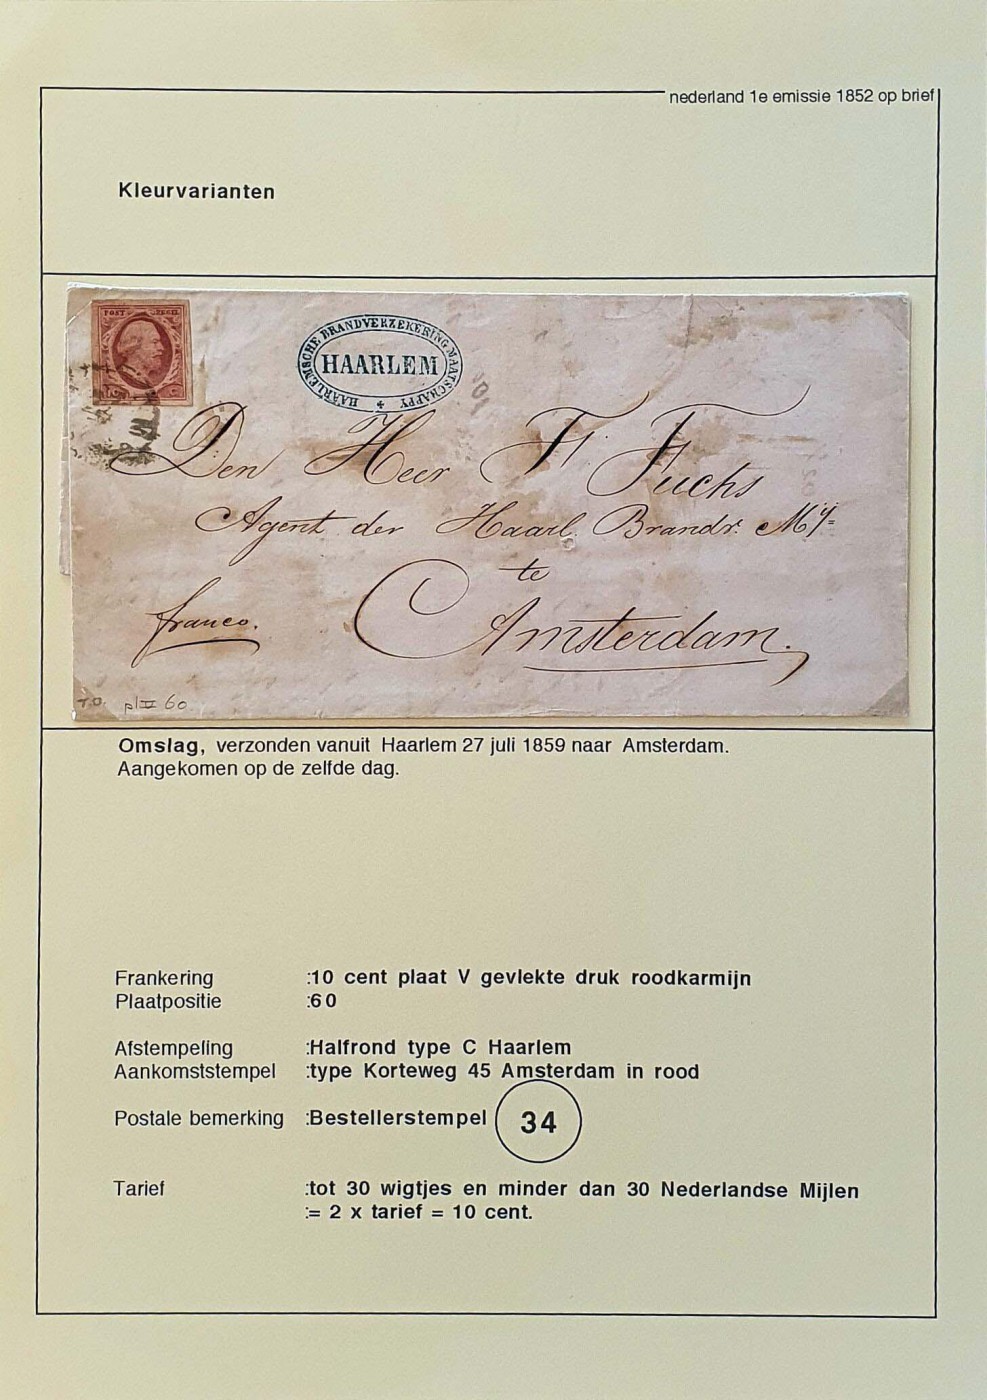 nederland 1e emissie 1852 op brief
Kleurvarianten
POST ZEGEL
HAARLEMSCHE BRANDVERZEKERING MAATSCHAPPY
HAARLEM
Den Heer F. Fuchs
Agent der Haarl. Brandv. My=
te
franco.
Amsterdam.
T.O. pl V 60
Omslag, verzonden vanuit Haarlem 27 juli 1859 naar Amsterdam.
Aangekomen op de zelfde dag.
Frankering :10 cent plaat V gevlekte druk roodkarmijn
Plaatpositie :60
Afstempeling :Halfrond type C Haarlem
Aankomststempel :type Korteweg 45 Amsterdam in rood
Postale bemerking :Bestellerstempel 34
Tarief :tot 30 wigtjes en minder dan 30 Nederlandse Mijlen
:= 2 x tarief = 10 cent.